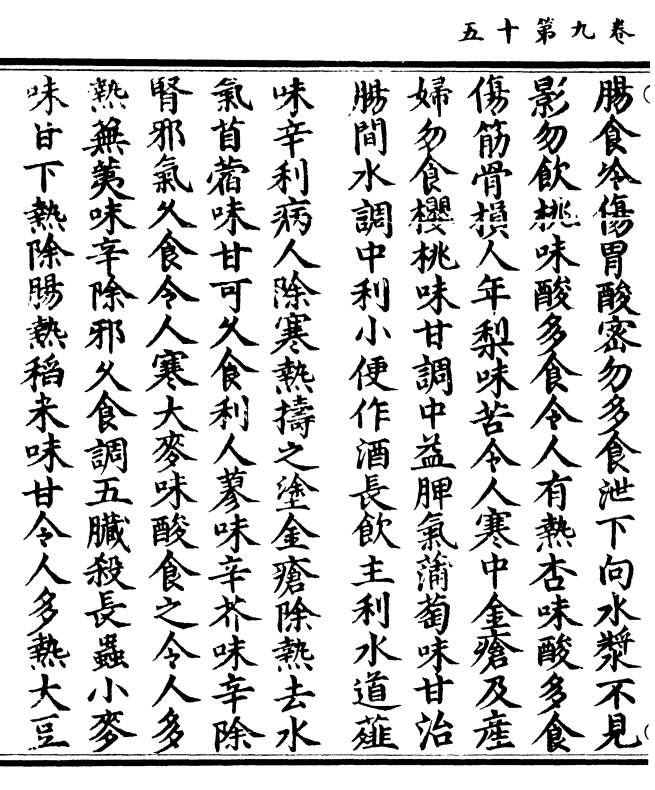 卷九第十五
腸食冷傷胃酸密勿多食泄下向水漿不見
影勿飲桃味酸多食令人有熱杏味酸多食
傷筋骨損人年梨味苦令人寒中金瘡及產
婦勿食櫻桃味甘調中益脾氣蒲萄味甘治
腸間水調中利小便作酒長飲主利水道薤
味辛利病人除寒熱擣之塗金瘡除熱去水
氣苜蓿味甘可久食利人蓼味辛芥味辛除
腎邪氣久食令人寒大麥味酸食之令人多
熱蕪荑味辛除邪久食調五臟殺長蟲小麥
味甘下熱除腸熱稻米味甘令人多熱大豆